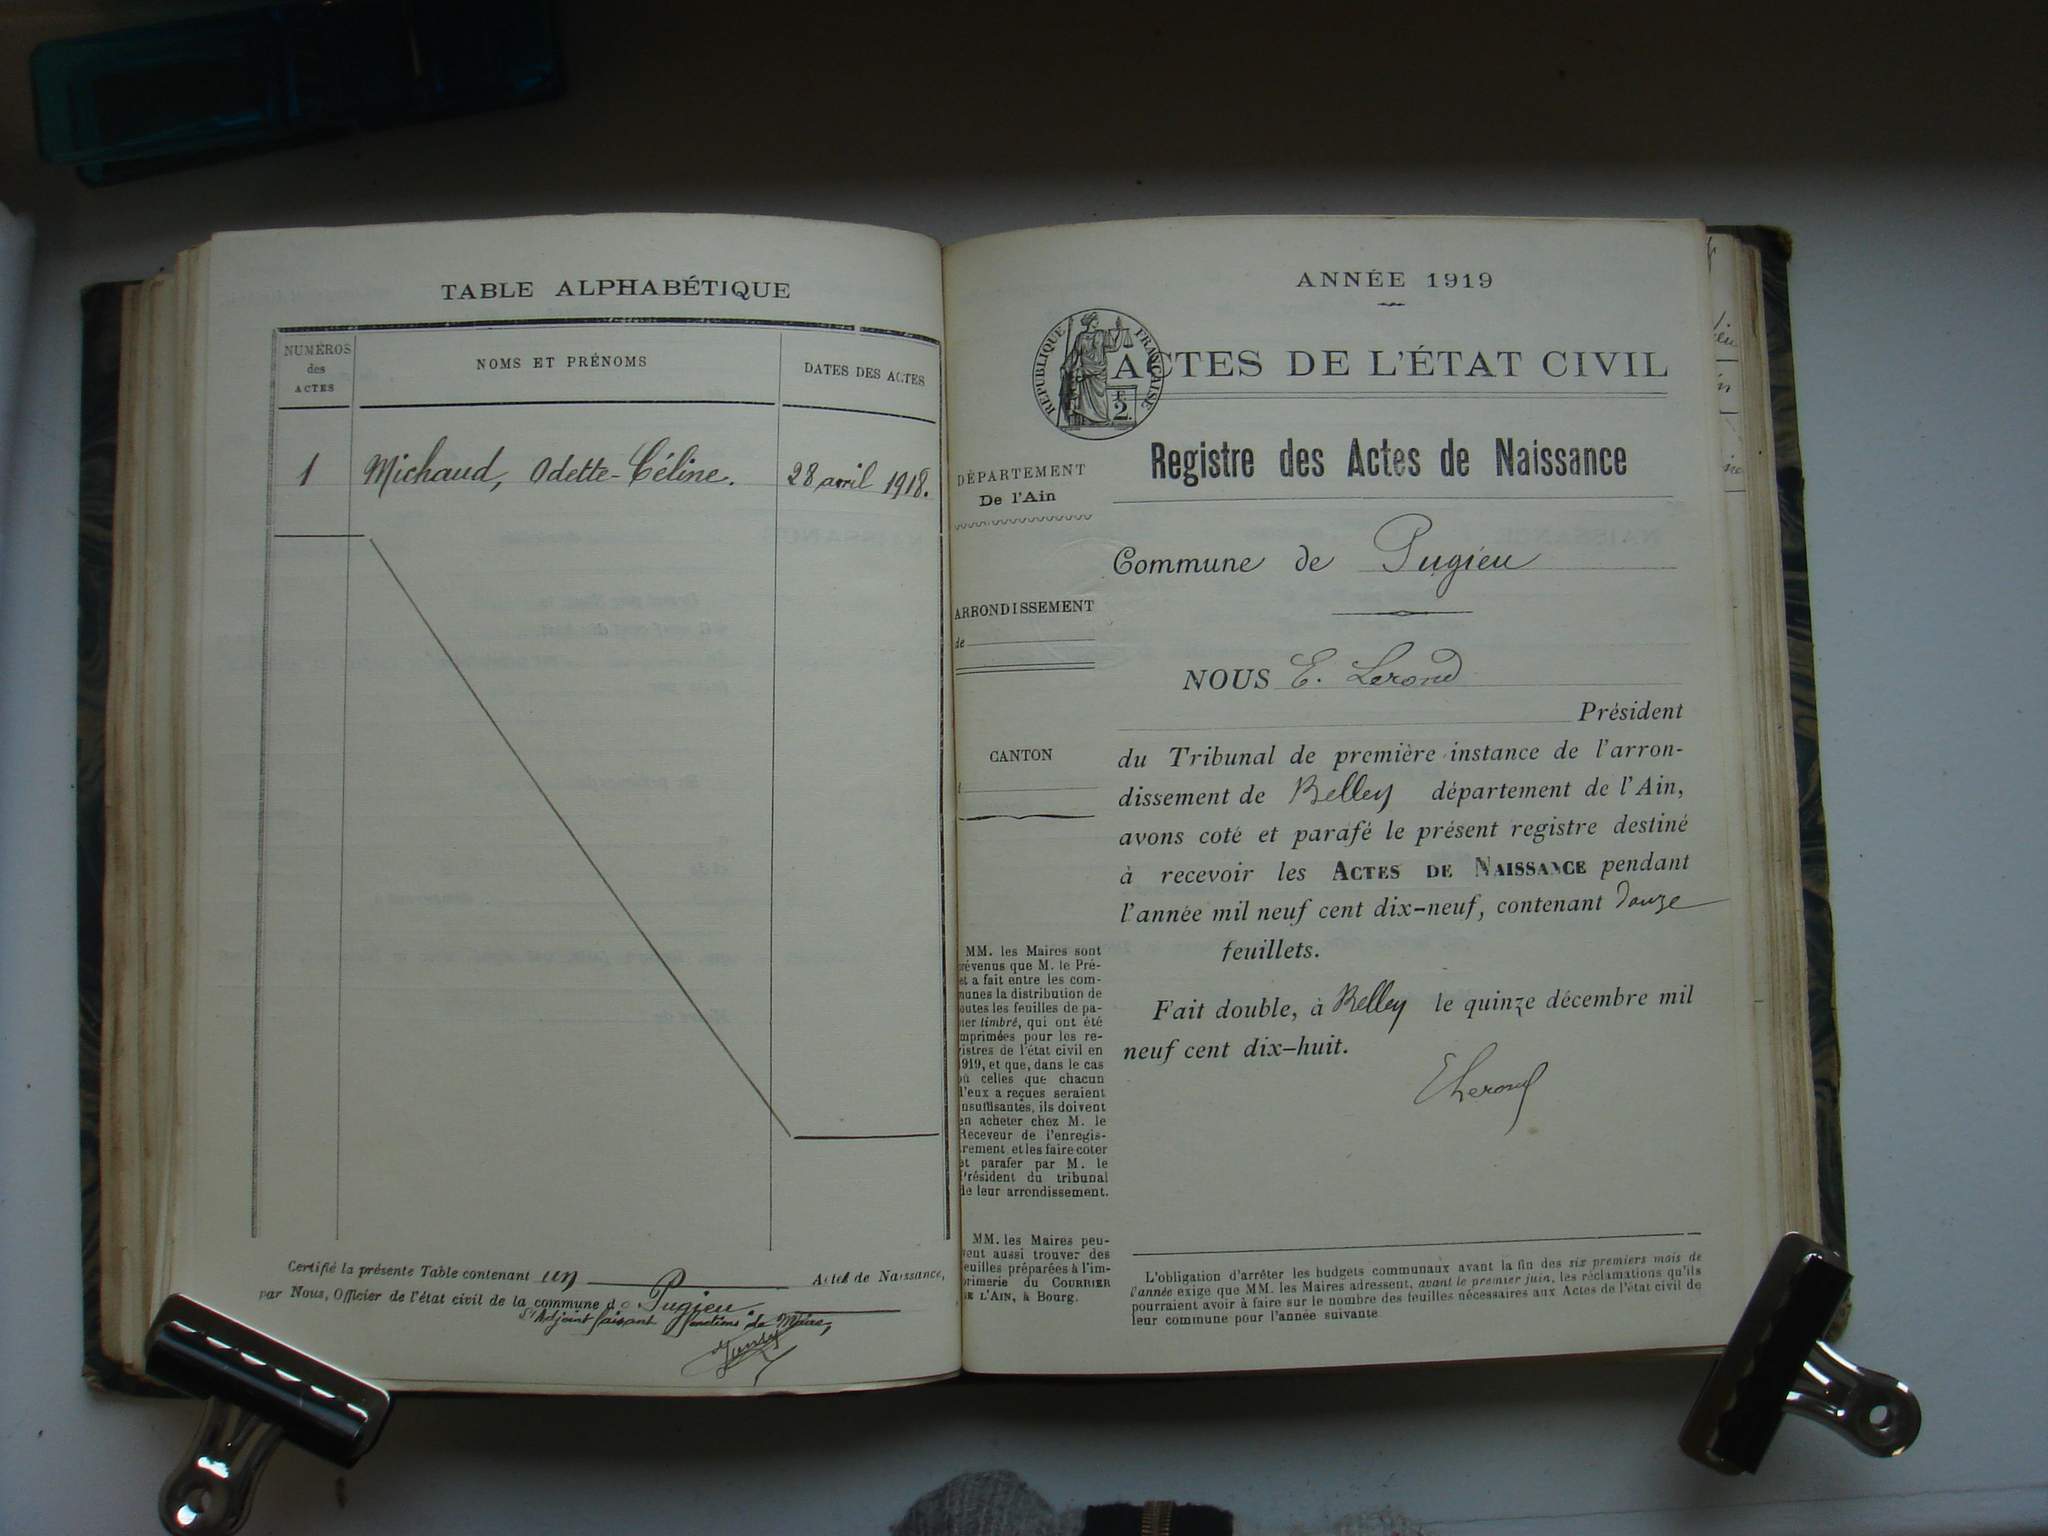 TABLE ALPHABÉTIQUE
NUMÉROS
des
ACTES
NOMS ET PRÉNOMS
DATES DES ACTES
1 Michaud, Odette-Céline. 28 avril 1918.
Certifié la présente Table contenant un Actes de Naissance,
par Nous, Officier de l'état civil de la commune de Pugieu
L'Adjoint faisant fonctions de Maire,
ANNÉE 1919
RÉPUBLIQUE FRANÇAISE
2
ACTES DE L'ÉTAT CIVIL
Registre des Actes de Naissance
DÉPARTEMENT
De l'Ain
ARRONDISSEMENT
de
CANTON
MM. les Maires sont
prévenus que M. le Pré-
fet a fait entre les com-
munes la distribution de
toutes les feuilles de pa-
pier timbré, qui ont été
imprimées pour les re-
gistres de l'état civil en
1919, et que, dans le cas
où celles que chacun
d'eux a reçues seraient
insuffisantes, ils doivent
en acheter chez M. le
Receveur de l'enregis-
trement et les faire coter
et parafer par M. le
Président du tribunal
de leur arrondissement.
MM. les Maires peu-
vent aussi trouver des
feuilles préparées à l'im-
primerie du COURRIER
DE L'AIN, à Bourg.
Commune de Pugieu
NOUS E. Lerond
Président
du Tribunal de première instance de l'arron-
dissement de Belley département de l'Ain,
avons coté et parafé le présent registre destiné
à recevoir les ACTES DE NAISSANCE pendant
l'année mil neuf cent dix-neuf, contenant douze
feuillets.
Fait double, à Belley le quinze décembre mil
neuf cent dix-huit.
E Lerond
L'obligation d'arrêter les budgets communaux avant la fin des six premiers mois de
l'année exige que MM. les Maires adressent, avant le premier juin, les réclamations qu'ils
pourraient avoir à faire sur le nombre des feuilles nécessaires aux Actes de l'état civil de
leur commune pour l'année suivante